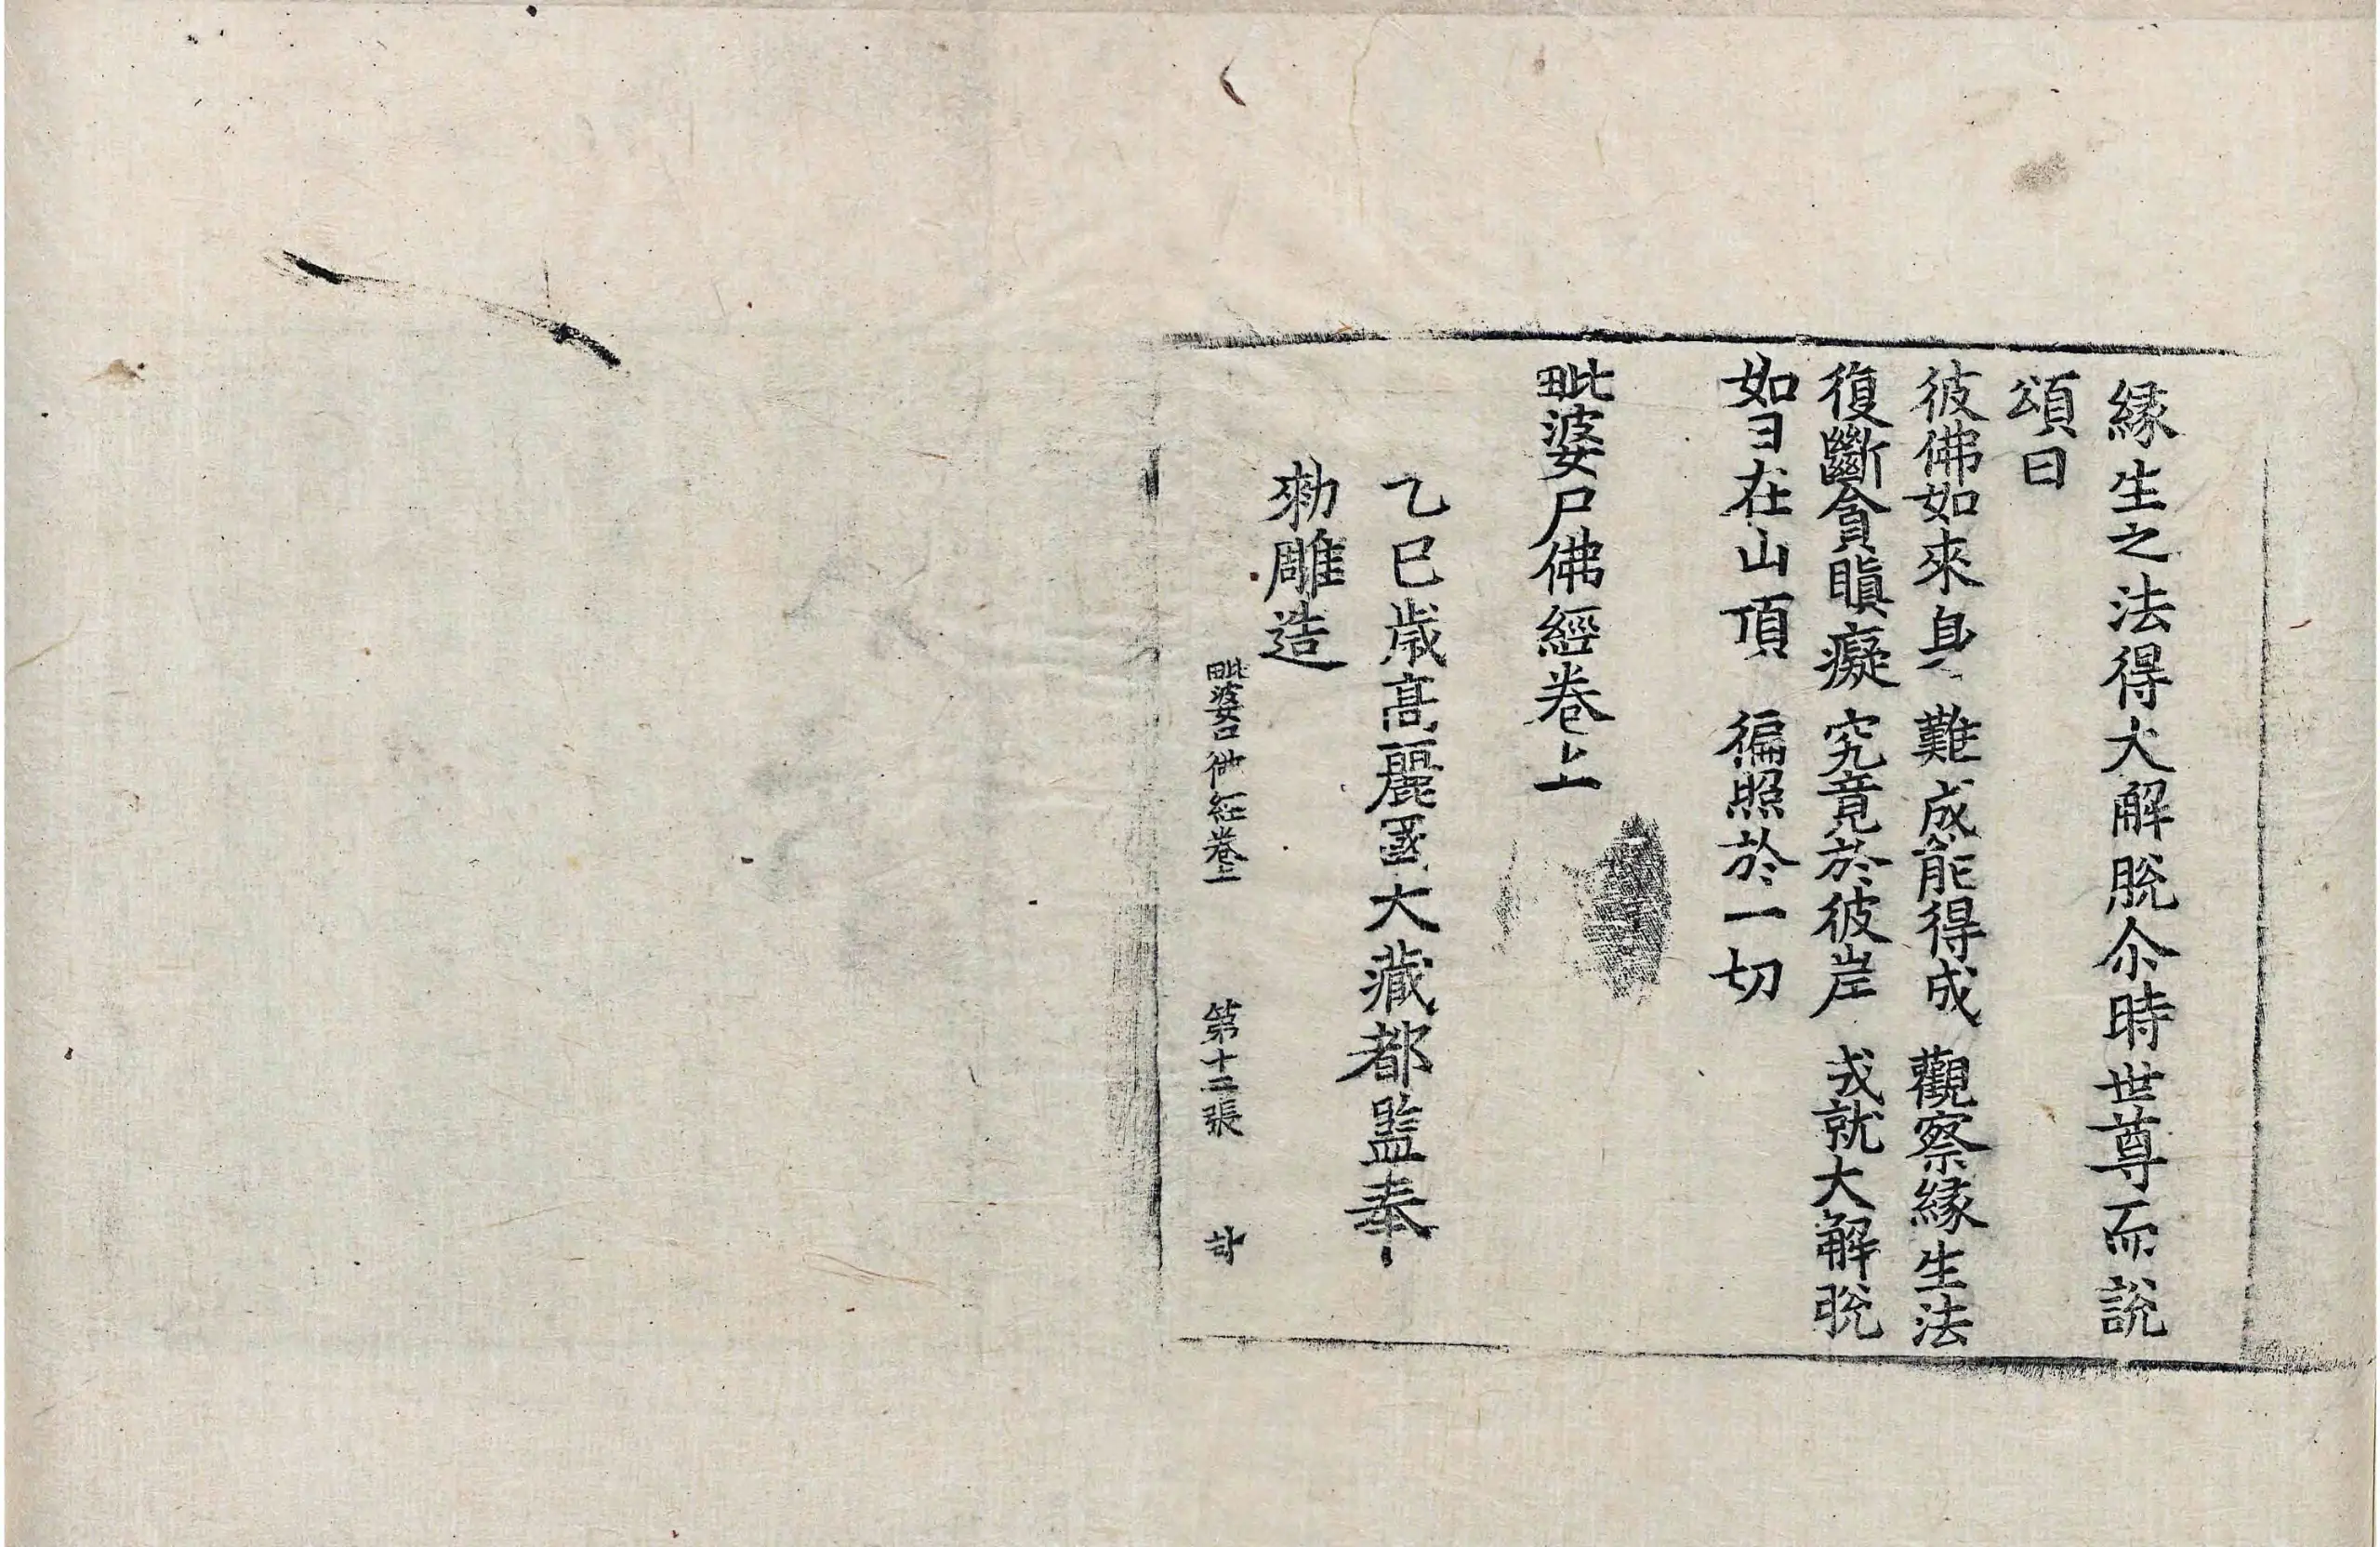 縁生之法得大解脫尒時世尊而說
頌曰
彼佛如來身 難成能得成 觀察縁生法
復斷貪瞋癡 究竟於彼岸 成就大解脫
如日在山頂 徧照於一切
毗婆尸佛經卷上
乙巳歳高麗國大藏都監奉
勑雕造
毗婆尸佛經卷上 第十二張